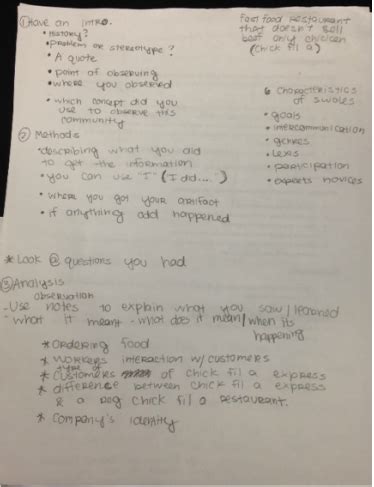 ① Have an intro.
• History?
• problems or stereotype?
• A quote
• point of observing
• where you observed
• which concept did you
use to observe this
community
fast food restaurant
that doesn't sell
beef only chicken
(Chick fil a)
6 characteristics
of swales
• goals
• intercommunication
• genres
• lexis
• participation
• experts novices
② Methods
• describing what you did
to get the information
• you can use "I" (I did....")
• where you got your artifact
• if anything odd happened
* Look @ questions you had
③ Analysis
observation
- Use notes to explain what you saw/learned
- what it meant - what does it mean/when its
happening
* Ordering food
* Workers interaction w/ customers
* type of customers of chick fil a express
* difference between chick fil a express
& a reg chick fil a restaurant.
* Company's identity